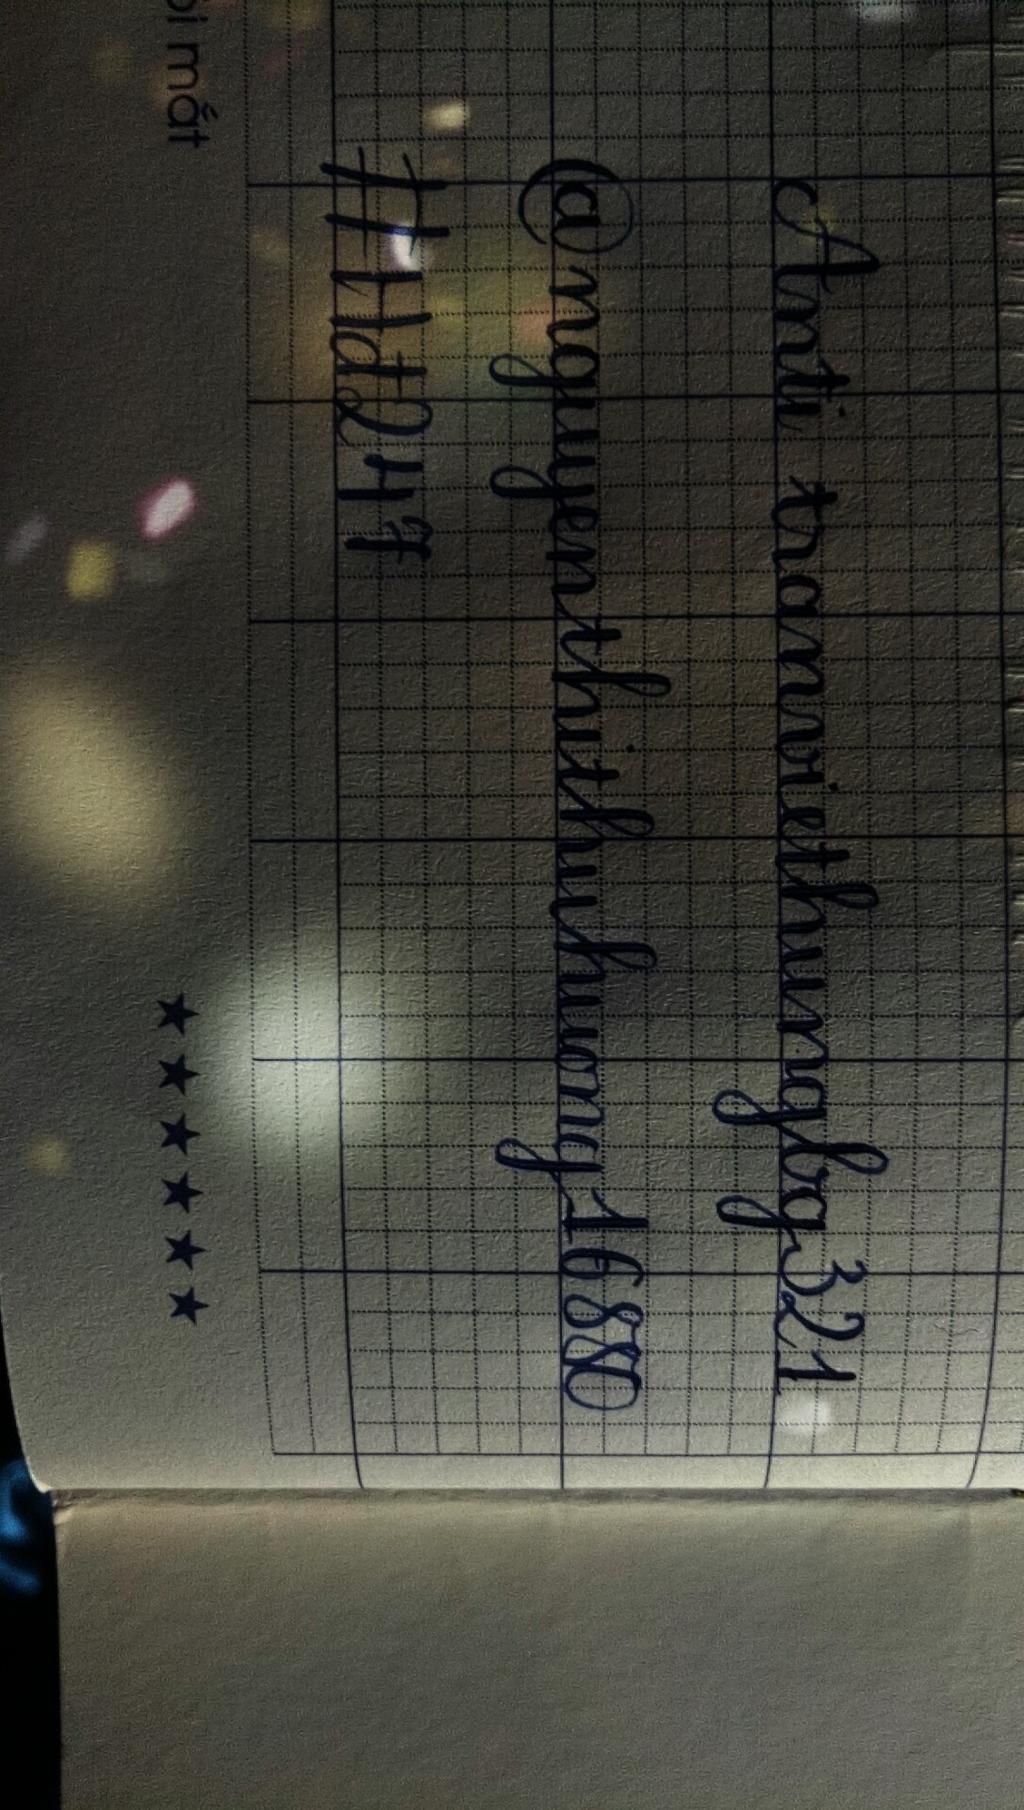 Anti tranviethungbg321
@nguyenthithuhuong1688
#Hd247
ỏi mắt
★★★★★★